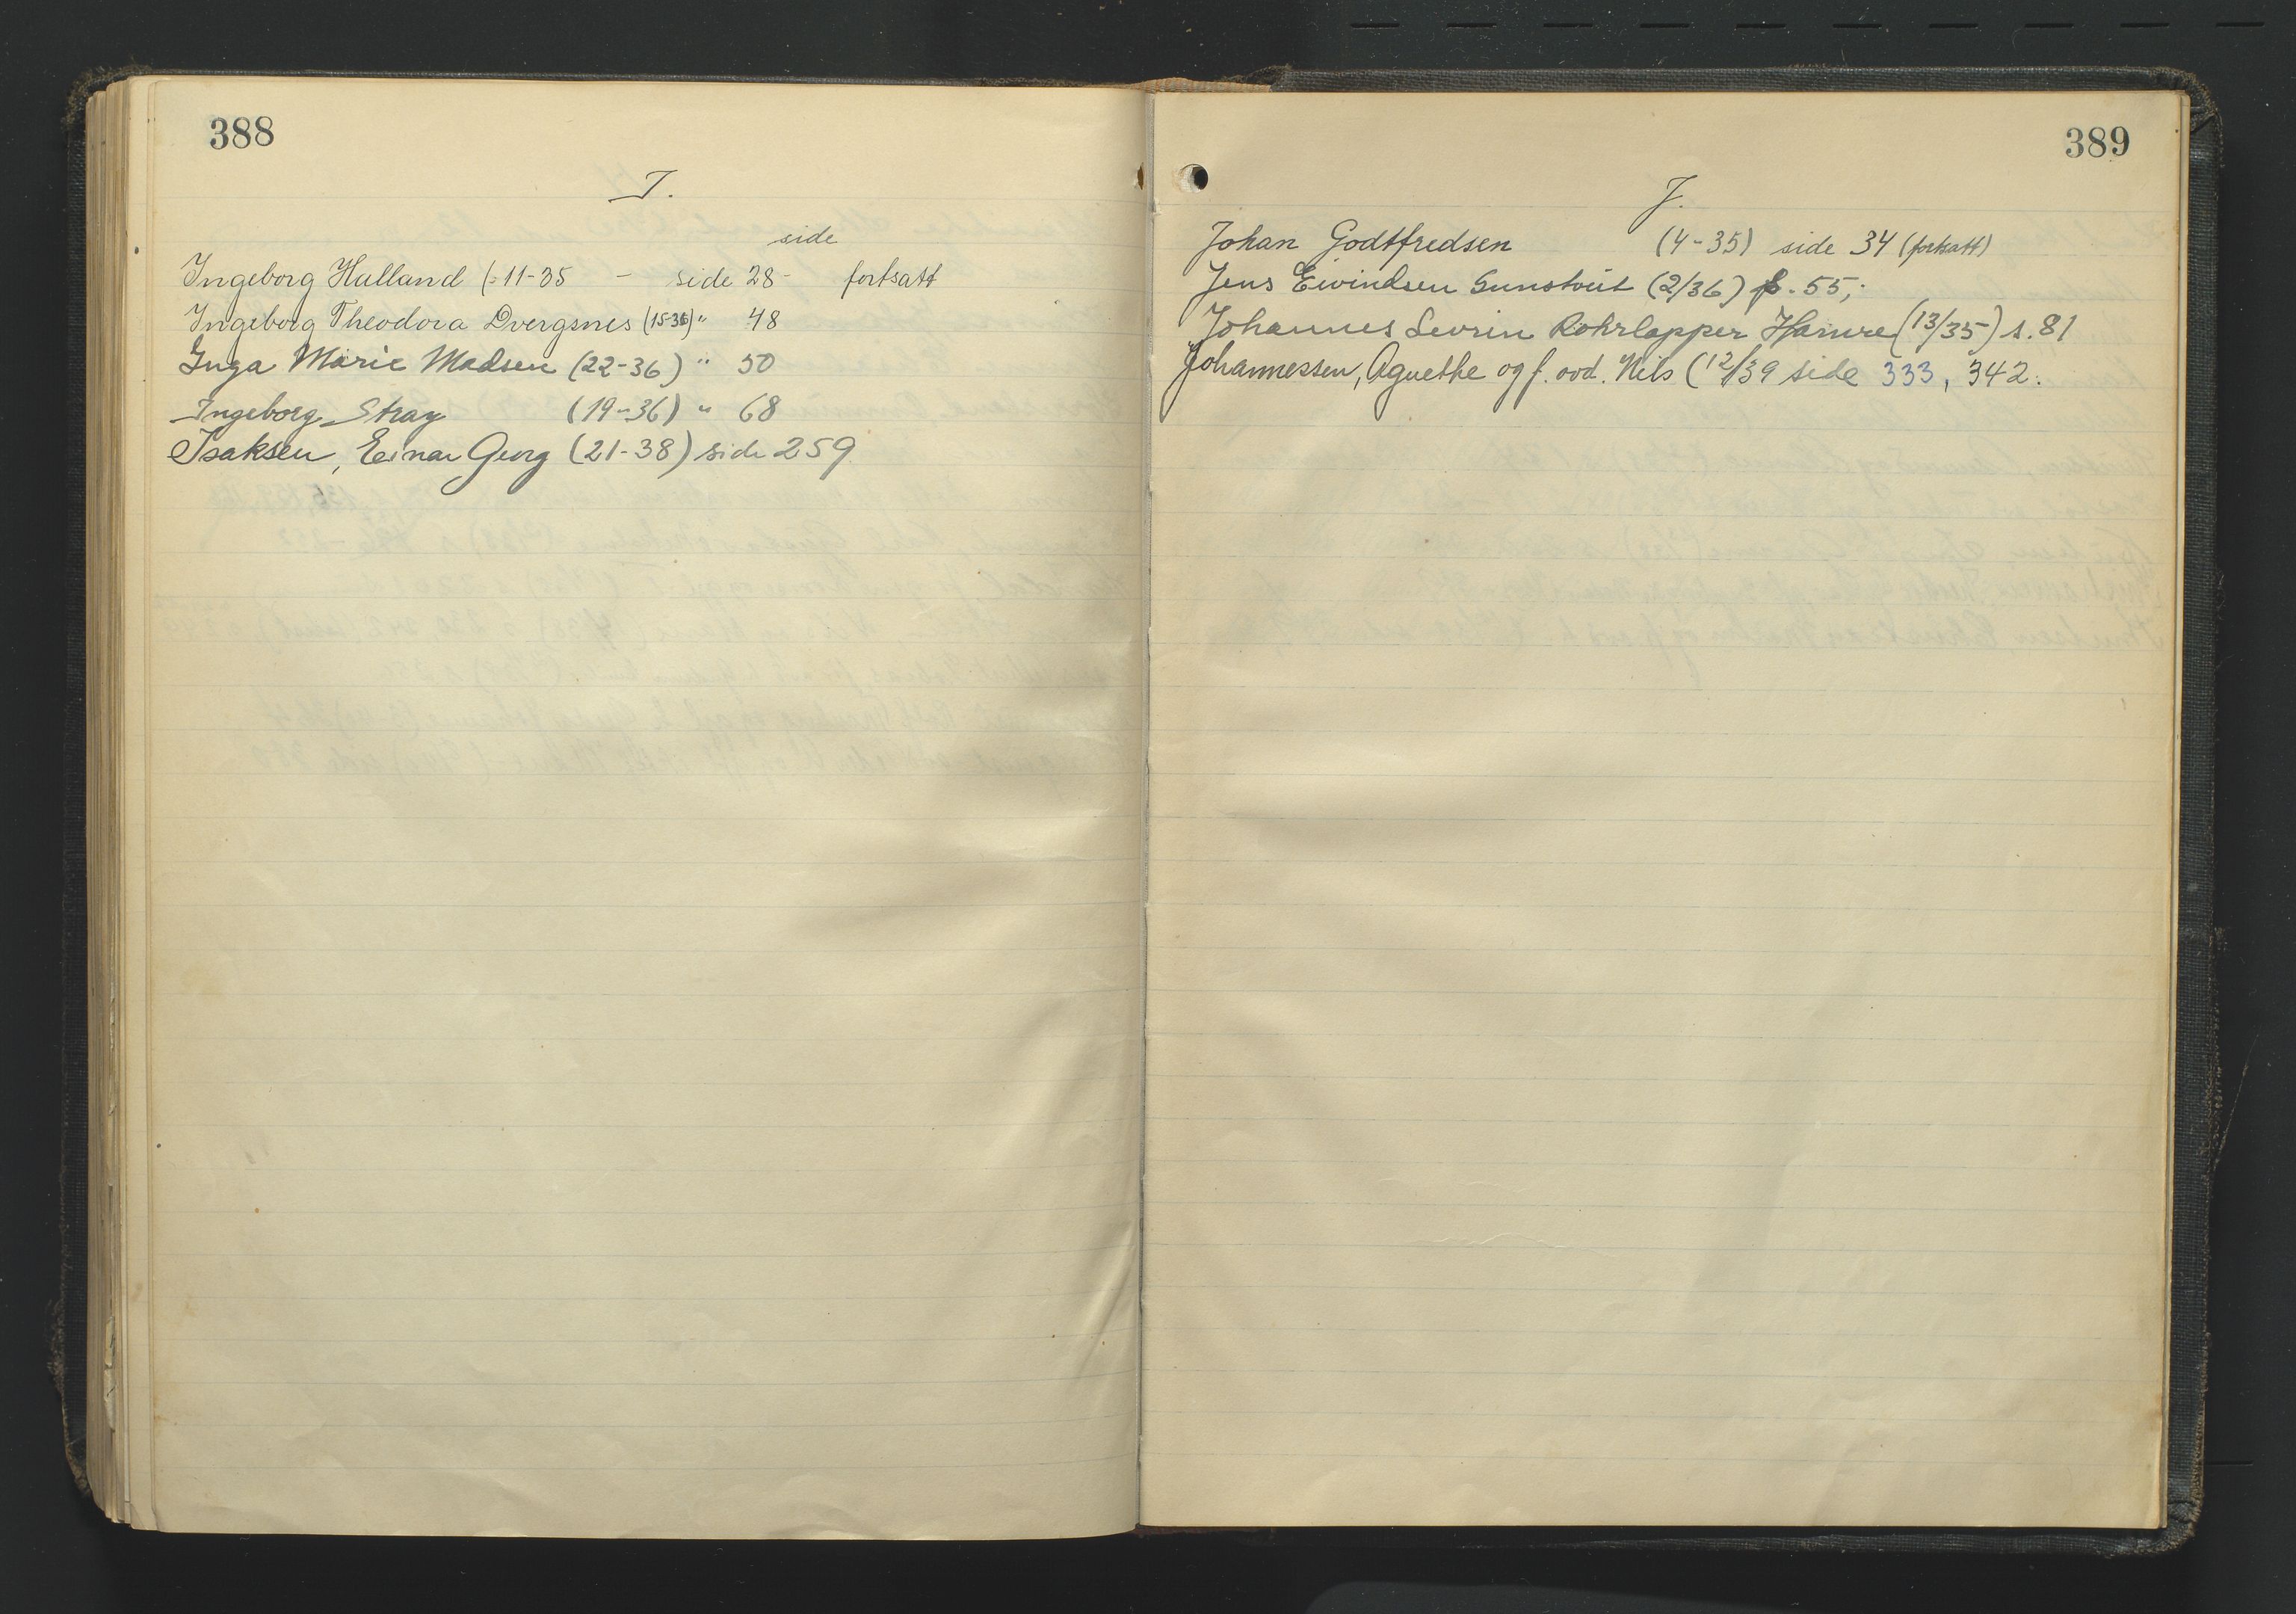 388
I.
side
Ingeborg Hulland (-11-35 - side 28- fortsatt
Ingeborg Theodora Dvergsnes (15-36) " 48
Inga Marie Madsen (22-36) " 50
Ingeborg Stray (19-36) " 68
Isaksen, Einar Georg (21-38) side 259
389
J.
Johan Godtfredsen (4-35) side 34 (fortsatt)
Jens Eivindsen (2/36) s. 55,
Johannes Sevrin Hamre (13/35) s. 81
Johannessen, Agnethe og f. avd. Nils (12/39 side 333, 342.